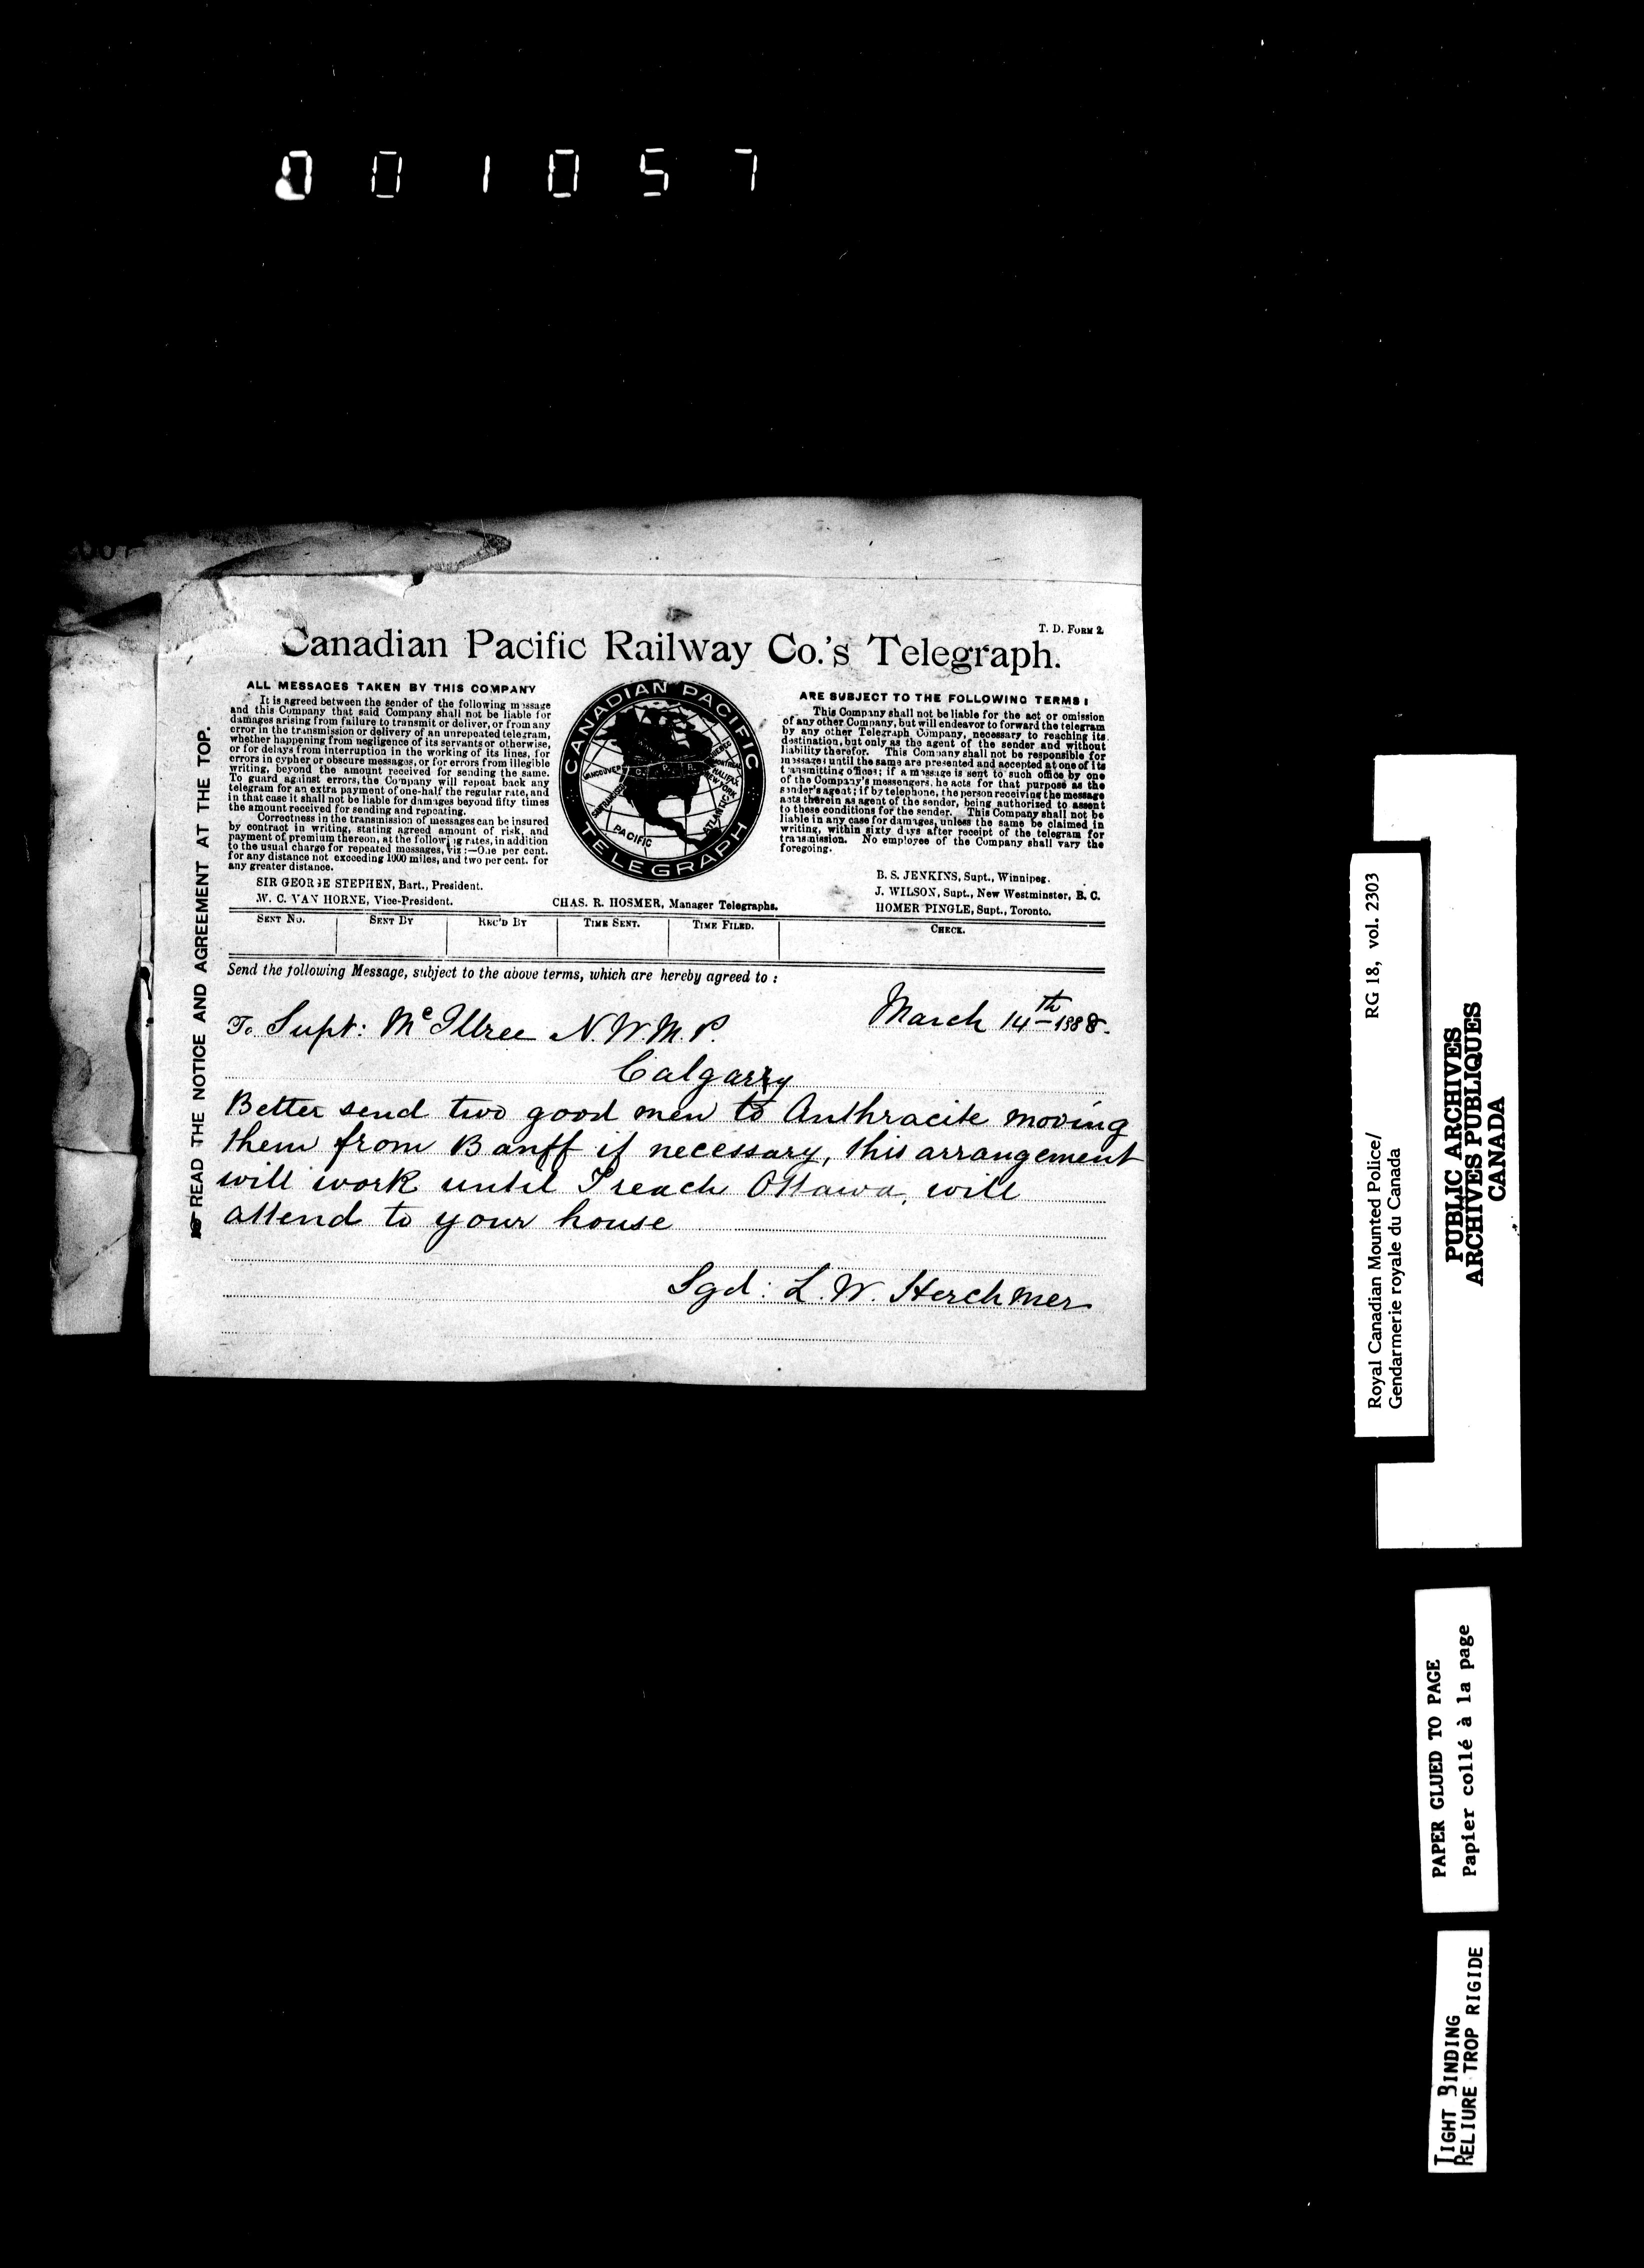 001057
T. D. FORM 2
Canadian Pacific Railway Co.'s Telegraph.
ALL MESSAGES TAKEN BY THIS COMPANY
It is agreed between the sender of the following message
and this Company that said Company shall not be liable for
damages arising from failure to transmit or deliver, or from any
error in the transmission or delivery of an unrepeated telegram,
whether happening from negligence of its servants or otherwise,
or for delays from interruption in the working of its lines, for
errors in cypher or obscure messages, or for errors from illegible
writing, beyond the amount received for sending the same.
To guard against errors, the Company will repeat back any
telegram for an extra payment of one-half the regular rate, and
in that case it shall not be liable for damages beyond fifty times
the amount received for sending and repeating.
Correctness in the transmission of messages can be insured
by contract in writing, stating agreed amount of risk, and
payment of premium thereon, at the following rates, in addition
to the usual charge for repeated messages, viz:—One per cent.
for any distance not exceeding 1000 miles, and two per cent. for
any greater distance.
SIR GEORGE STEPHEN, Bart., President.
W. C. VAN HORNE, Vice-President.
CANADIAN PACIFIC
TELEGRAPH
VANCOUVER
C. P. R.
QUEBEC
MONTREAL
HALIFAX
NEW YORK
SAN FRANCISCO
PACIFIC
ATLANTIC
CHAS. R. HOSMER, Manager Telegraphs.
ARE SUBJECT TO THE FOLLOWING TERMS:
This Company shall not be liable for the act or omission
of any other Company, but will endeavor to forward the telegram
by any other Telegraph Company, necessary to reaching its
destination, but only as the agent of the sender and without
liability therefor. This Company shall not be responsible for
messages until the same are presented and accepted at one of its
transmitting offices; if a message is sent to such office by one
of the Company's messengers, he acts for that purpose as the
sender's agent; if by telephone, the person receiving the message
acts therein as agent of the sender, being authorized to assent
to these conditions for the sender. This Company shall not be
liable in any case for damages, unless the same be claimed in
writing, within sixty days after receipt of the telegram for
transmission. No employee of the Company shall vary the
foregoing.
B. S. JENKINS, Supt., Winnipeg.
J. WILSON, Supt., New Westminster, B. C.
HOMER PINGLE, Supt., Toronto.
SENT NO. SENT BY REC'D BY TIME SENT. TIME FILED. CHECK.
Send the following Message, subject to the above terms, which are hereby agreed to:
March 14th 1888.
To Supt: McIllree N.W.M.P.
Calgarry
Better send two good men to Anthracite moving
them from Banff if necessary, this arrangement
will work until I reach Ottawa, will
attend to your house
Sgd: L. W. Herchmer
READ THE NOTICE AND AGREEMENT AT THE TOP.
Royal Canadian Mounted Police/ RG 18, vol. 2303
Gendarmerie royale du Canada
PUBLIC ARCHIVES
ARCHIVES PUBLIQUES
CANADA
PAPER GLUED TO PAGE
Papier collé à la page
TIGHT BINDING
RELIURE TROP RIGIDE